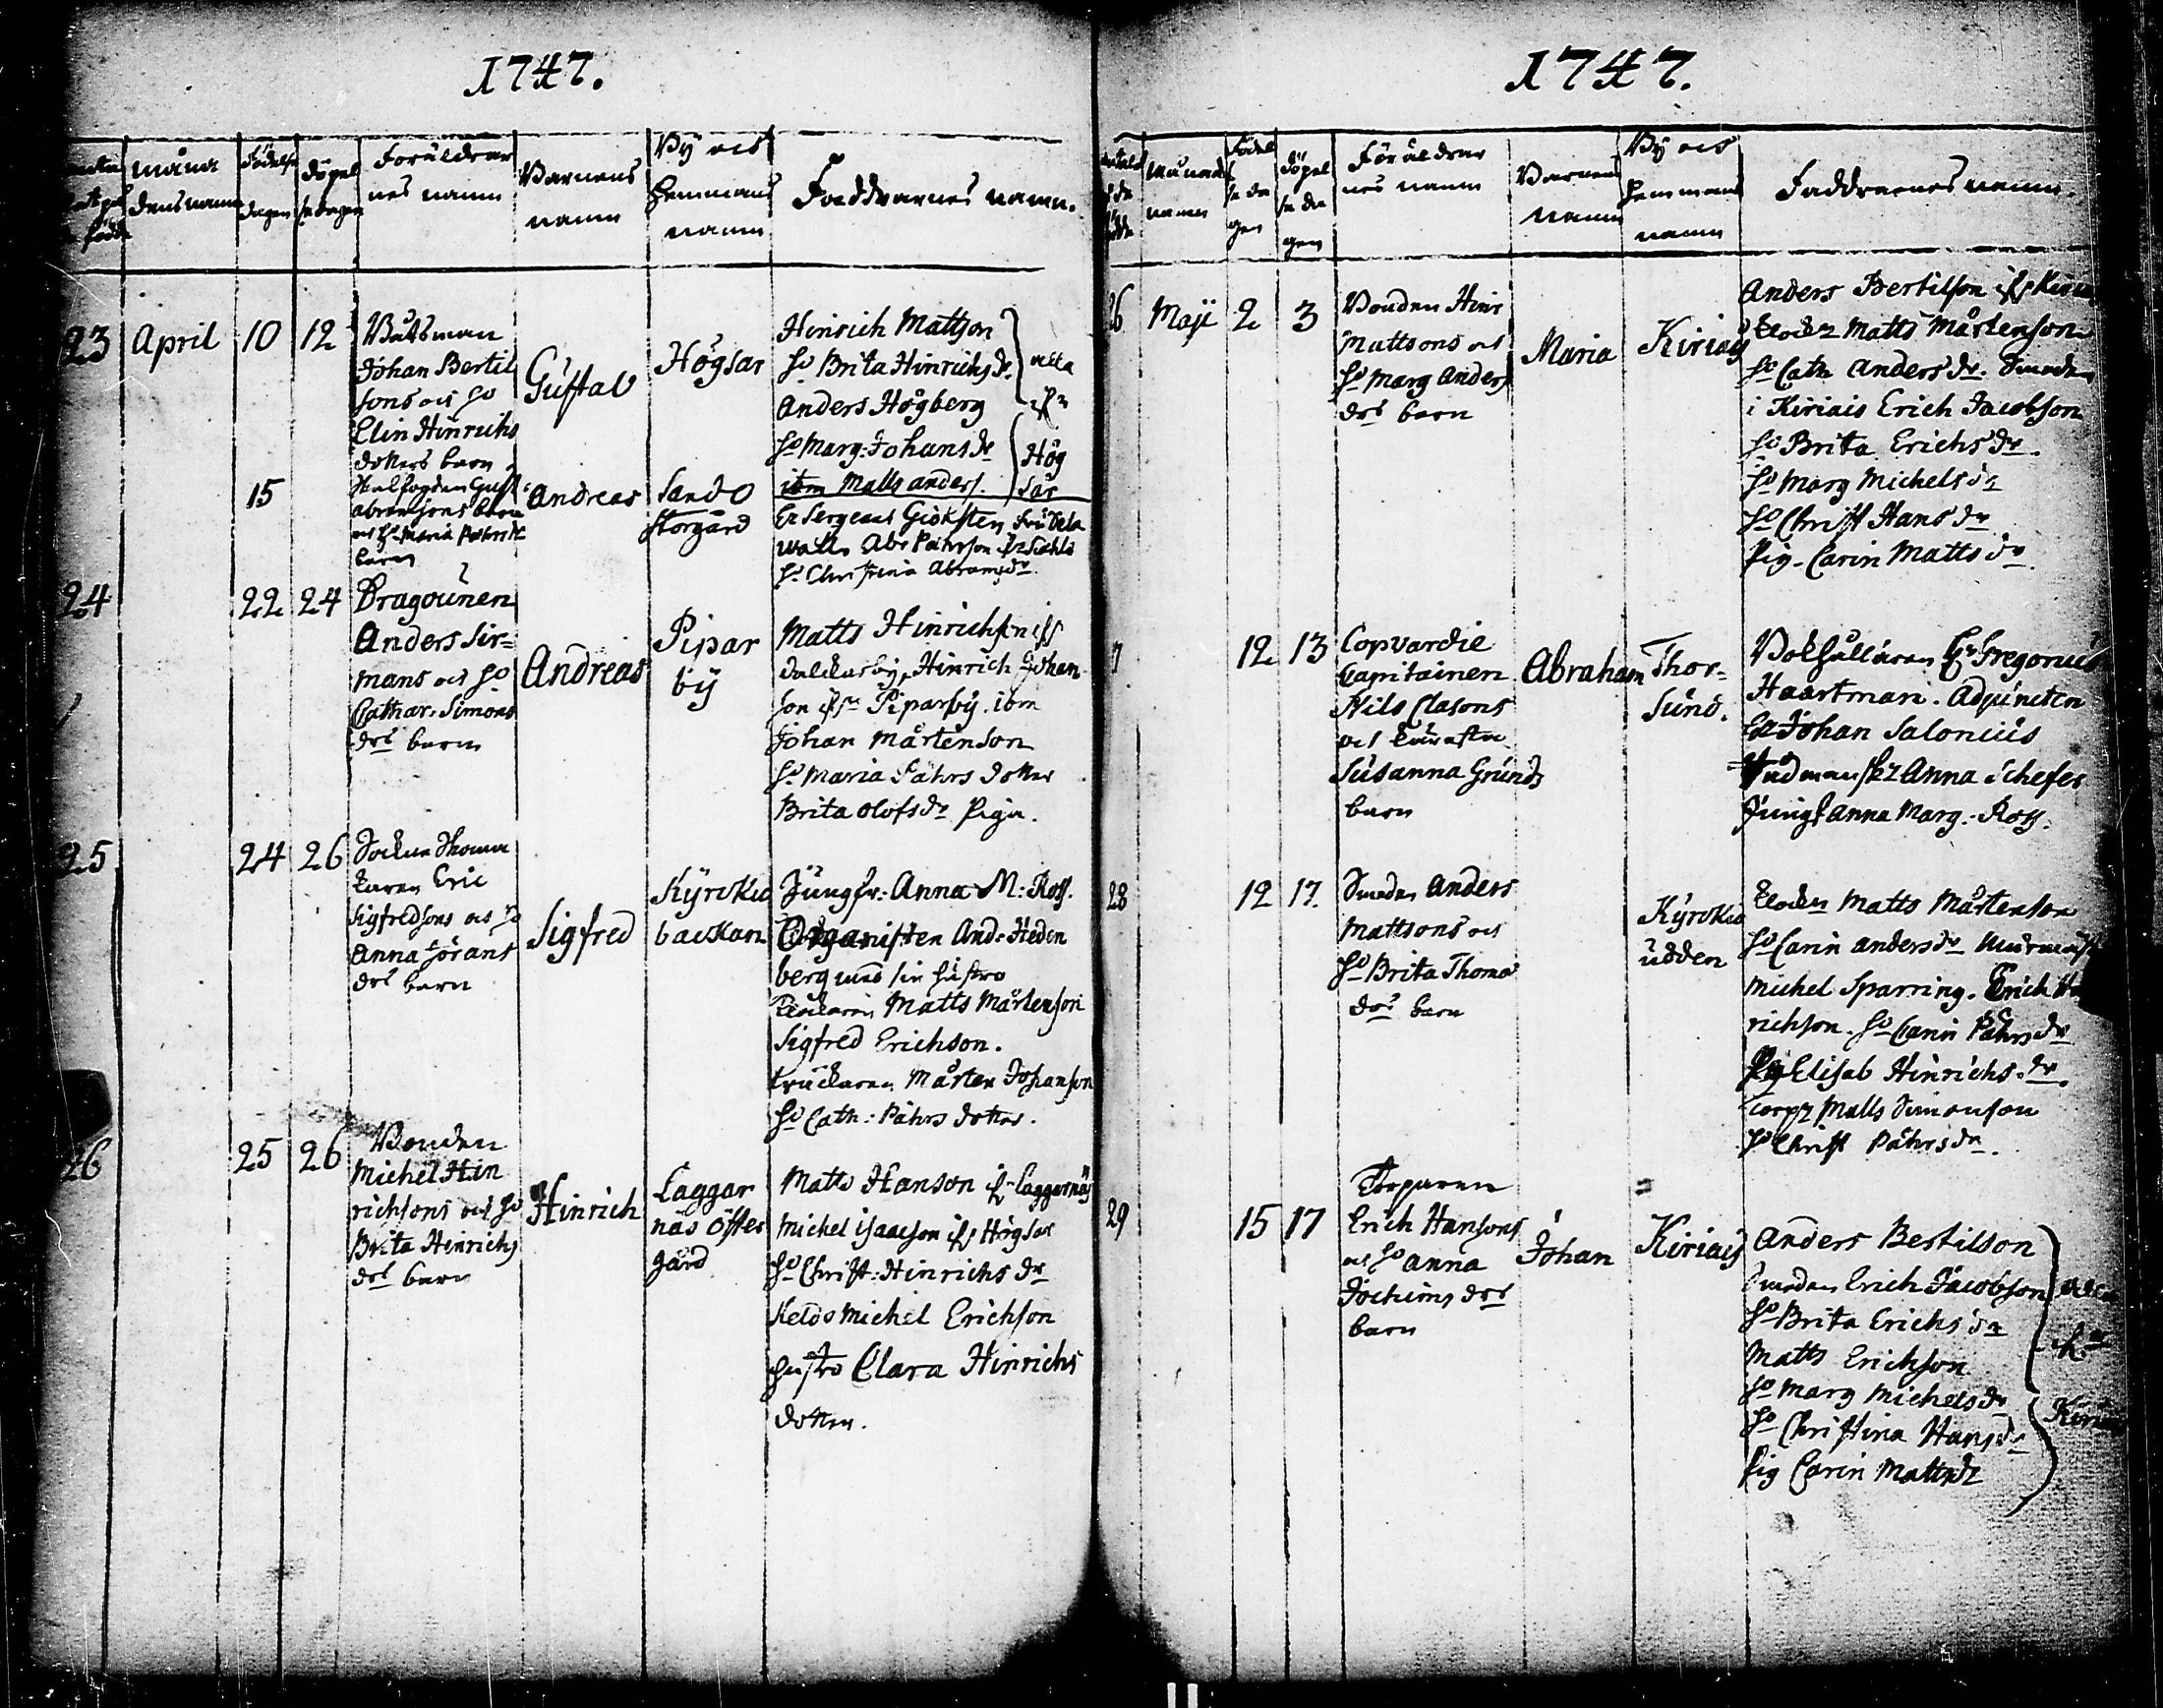 1747.
måna
dens namn
Födelse
dagen
Döpel
se dagen
Föräldrar
nes namn
Barnens
namn
By och
hemmans
namn
Faddrarnes namn.
23 April 10 12
Båtsman
Johan Bertil
sons och ho
Elin Hinrichs
dotters barn
Gustav
Högsar
Hinrich Mattson
ho Brita Hinrichsdr.
Anders Högberg
ho Marg: Johansdr
ibm Matts anders.
alla
Hög
sar
15
abramsons barn
barn
Andreas
Sando
storgård
Er Sergeant
Abr Påhrson
ho Christina Abramsdr.
24 22 24
Dragounen
Anders Sir=
mans och ho
Cathar. Simons
drs barn
Andreas
Pipar
by
Matts Hinrichson
Hinrich Johan
son Piparby. ibm
Johan Mårtenson
ho Maria Påhrs dotter
Brita Olofsdr Piga.
25 24 26
Eric
Sigfredsons och ho
Anna Jörans
drs barn
Sigfred
Kyrckio
backan
Jungfr: Anna M: Ross.
Organisten And: Heden
berg med sin hustro
Klockaren Matts Mårtenson
Sigfred Erichson.
Mårten Johanson
ho Cath: Påhrs dotter.
26 25 26
Bonden
Michel Hin
richsons och ho
Brita Hinrichs
drs barn
Hinrich
Laggar
näs Öster
gård
Matts Hanson Laggarnäs
Michel Isaacson Högsar
ho Christ: Hinrichs dr
Michel Erichson
hustro Clara Hinrichs
dotter.
1747.
månad
namn
Födel
se da
gen
Döpel
se da
gen
Föräldrar
nes namn
Barnens
namn
By och
hemmans
namn
Faddrarnes namn.
26 Maji 2 3
Bonden Hinr
Mattsons och
ho Marg Anders
drs barn
Maria
Kiriais
Anders Bertilson
Matts Mårtenson
ho Cath Andersdr. Smeden
i Kiriais Erich Jacobson
ho Brita Erichsdr.
ho Marg Michelsdr
ho Christ Hansdr
Pig. Carin Mattsdr
7 12 13
Copvardie
Capitainen
Nils Clasons
och
Susanna Grunds
barn
Abraham
Thor=
sund.
Bokhållaren Hr Gregorius
Haartman. Adjuncten
Er Johan Salonius
Anna Schefer
Jungf Anna Marg. Ross.
28 12 17.
Smeden Anders
Mattsons och
ho Brita Thomas
drs barn
Kyrckio
udden
Matts Mårtenson
ho Carin andersdr
Michel Sparring. Erich
richson. ho Carin Påhrsdr
Pig Elisab Hinrichs dr.
Matts Simonson
ho Christ Påhrsdr.
29 15 17
Torparen
Erich Hansons
och ho Anna
Jochims drs
barn
Johan
Kiriais
Anders Bertilson
Smeden Erich Jacobson
ho Brita Erichsdr
Matts Erichson
ho Marg Michelsdr
ho Christina Hansdr
Pig Carin Mattsdr